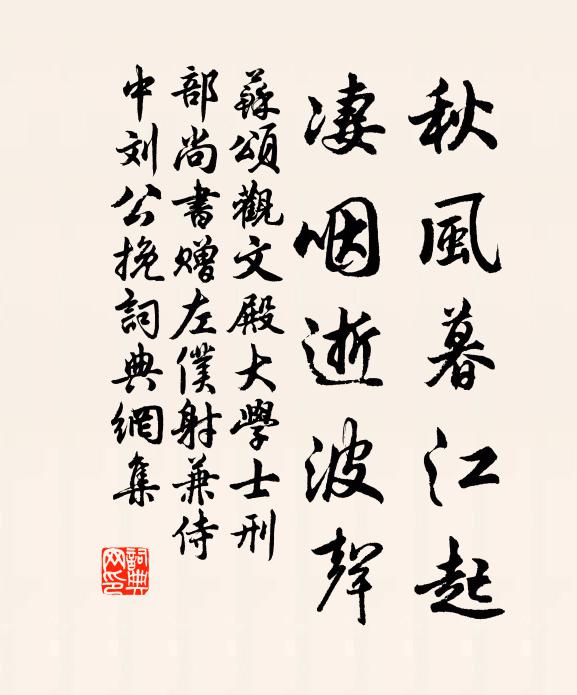 秋風暮江起
凄咽逝波聲
蘇頌觀文殿大學士刑
部尚書贈左僕射兼侍
中刘公挽詞典網集
詞典网印